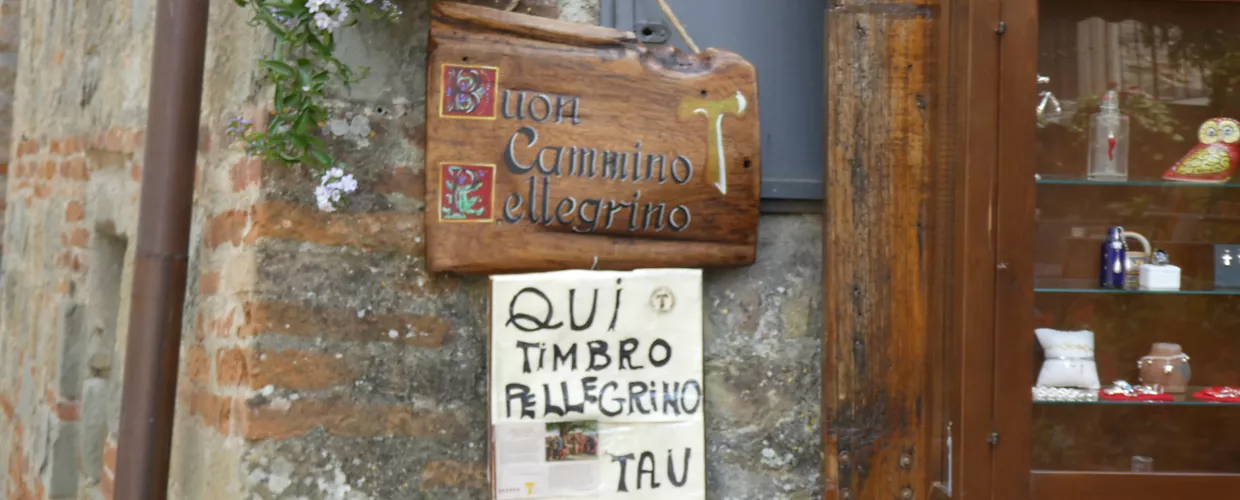 Buon
Cammino
Pellegrino
QUI
TIMBRO
PELLEGRINO
TAU